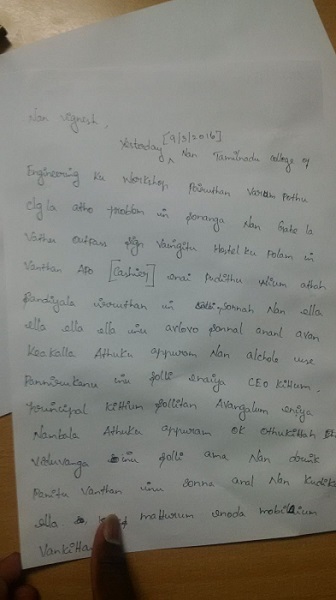 Nan vignesh,
Yestoday [9/3/2016] Nan Tamilnadu college of
Engineering ku workshop poiruthan Varum pothu
clg la etho problem in ponanga Nan Gate la
Vathu outpass sign Vangitu Hostel ku polam in
Vanthan Apo [Cashier] enai Pudithu
in sonnan Nan ella
ella ella ella inu avlovo sonnal anal avan
Keakalla Athuku appuram Nan alchole use
Pannirukenu inu solli enaiya CEO kittum.
Principal kittum sollitan Avangalum eniya
Nankala Athuku appuram ok othukittah
Viduvanga inu solli ama Nan drink
Panitu Vanthan inu sonna anal Nan Kudika
ella matturum enoda mobilium
Vankittan